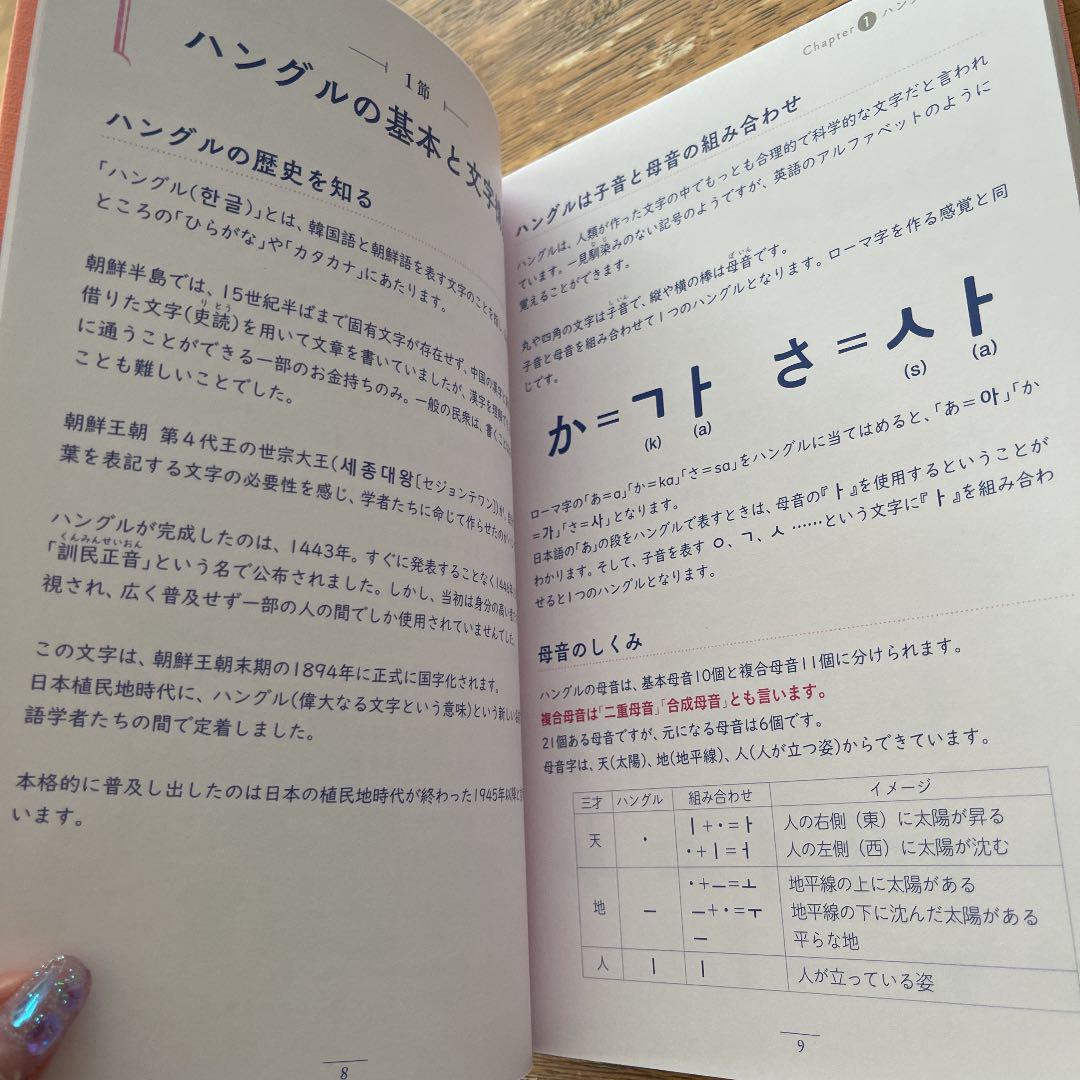 1節
ハングルの基本と文字
ハングルの歴史を知る
「ハングル(한글)」とは、韓国語と朝鮮語を表す文字のことを
ところの「ひらがな」や「カタカナ」にあたります。
朝鮮半島では、15世紀半ばまで固有文字が存在せず、中国の漢字
借りた文字(吏読)を用いて文章を書いていましたが、漢字を理解
りとう
に通うことができる一部のお金持ちのみ。一般の民衆は、書くこと
ことも難しいことでした。
朝鮮王朝 第4代王の世宗大王(세종대왕[セジョンテワン])が、
葉を表記する文字の必要性を感じ、学者たちに命じて作らせたのが
ハングルが完成したのは、1443年。すぐに発表することなく1446年
くんみんせいおん
「訓民正音」という名で公布されました。しかし、当初は身分の高い
視され、広く普及せず一部の人の間でしか使用されていませんでした。
この文字は、朝鮮王朝末期の1894年に正式に国字化されます。
日本植民地時代に、ハングル(偉大なる文字という意味)という新しい
語学者たちの間で定着しました。
本格的に普及し出したのは日本の植民地時代が終わった1945年以降と
います。
8
Chapter 1 ハン
ハングルは子音と母音の組み合わせ
ハングルは、人類が作った文字の中でもっとも合理的で科学的な文字だと言われ
ています。一見馴染みのない記号のようですが、英語のアルファベットのように
覚えることができます。
丸や四角の文字は子音で、縦や横の棒は母音です。
しいん
ぼいん
子音と母音を組み合わせて1つのハングルとなります。ローマ字を作る感覚と同
じです。
か=ㄱㅏ さ=ㅅㅏ
(k) (a) (s) (a)
ローマ字の「あ=a」「か=ka」「さ=sa」をハングルに当てはめると、「あ=아」「か
=가」「さ=사」となります。
日本語の「あ」の段をハングルで表すときは、母音の『ㅏ』を使用するということが
わかります。そして、子音を表す ㅇ、ㄱ、ㅅ ……という文字に『ㅏ』を組み合わ
せると1つのハングルとなります。
母音のしくみ
ハングルの母音は、基本母音10個と複合母音11個に分けられます。
複合母音は「二重母音」「合成母音」とも言います。
21個ある母音ですが、元になる母音は6個です。
母音字は、天(太陽)、地(地平線)、人(人が立つ姿)からできています。
三才 ハングル 組み合わせ イメージ
天 ・ ㅣ+・=ㅏ 人の右側(東)に太陽が昇る
・+ㅣ=ㅓ 人の左側(西)に太陽が沈む
地 ㅡ ・+ㅡ=ㅗ 地平線の上に太陽がある
ㅡ+・=ㅜ 地平線の下に沈んだ太陽がある
ㅡ 平らな地
人 ㅣ ㅣ 人が立っている姿
9